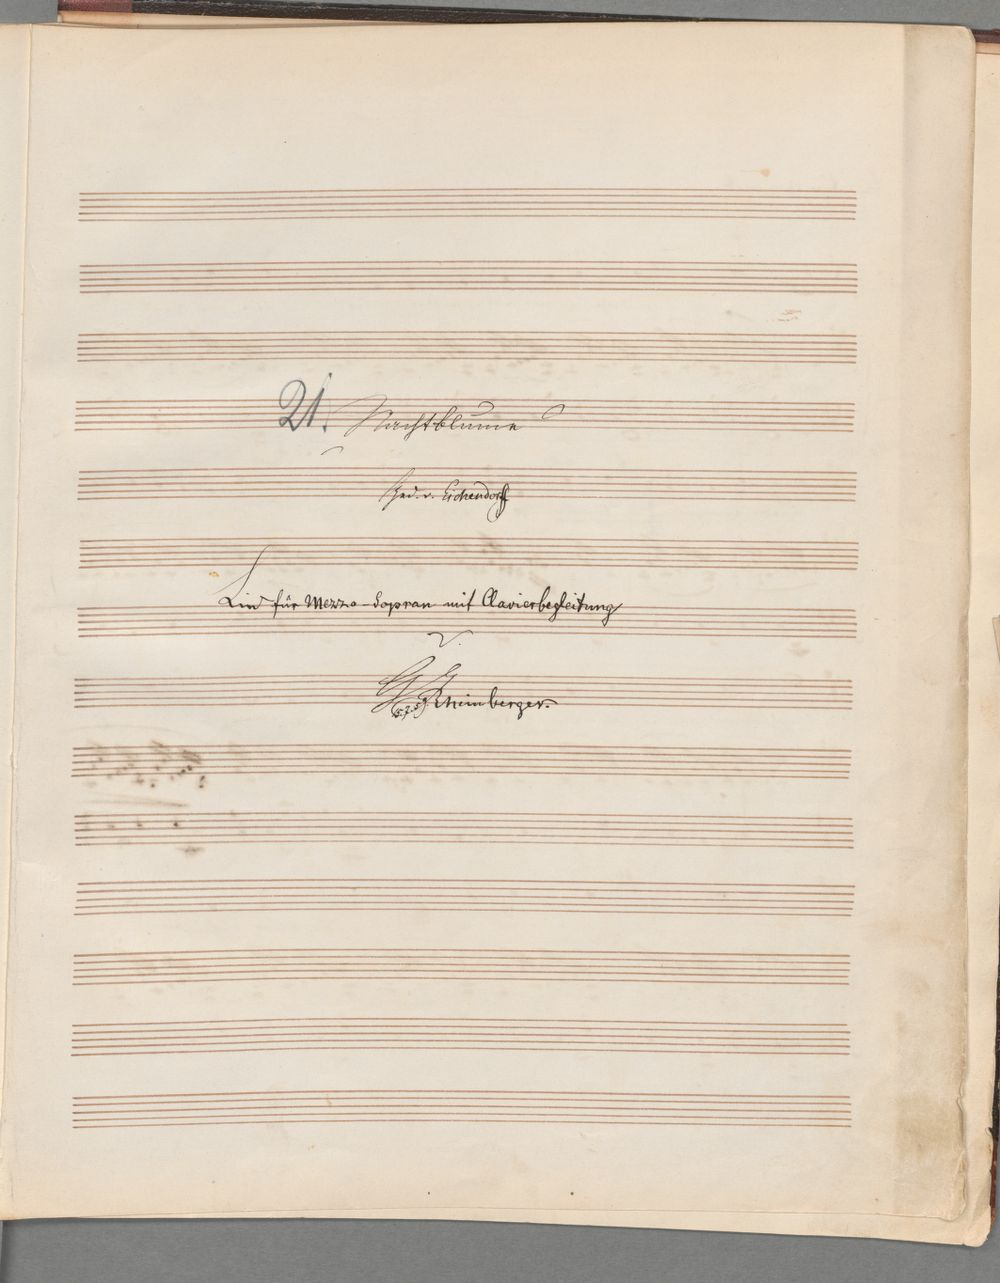 21. Nachtblume
Ged. v. Eichendorff
Lied für Mezzo-Sopran mit Clavierbegleitung
v.
Rheinberger.